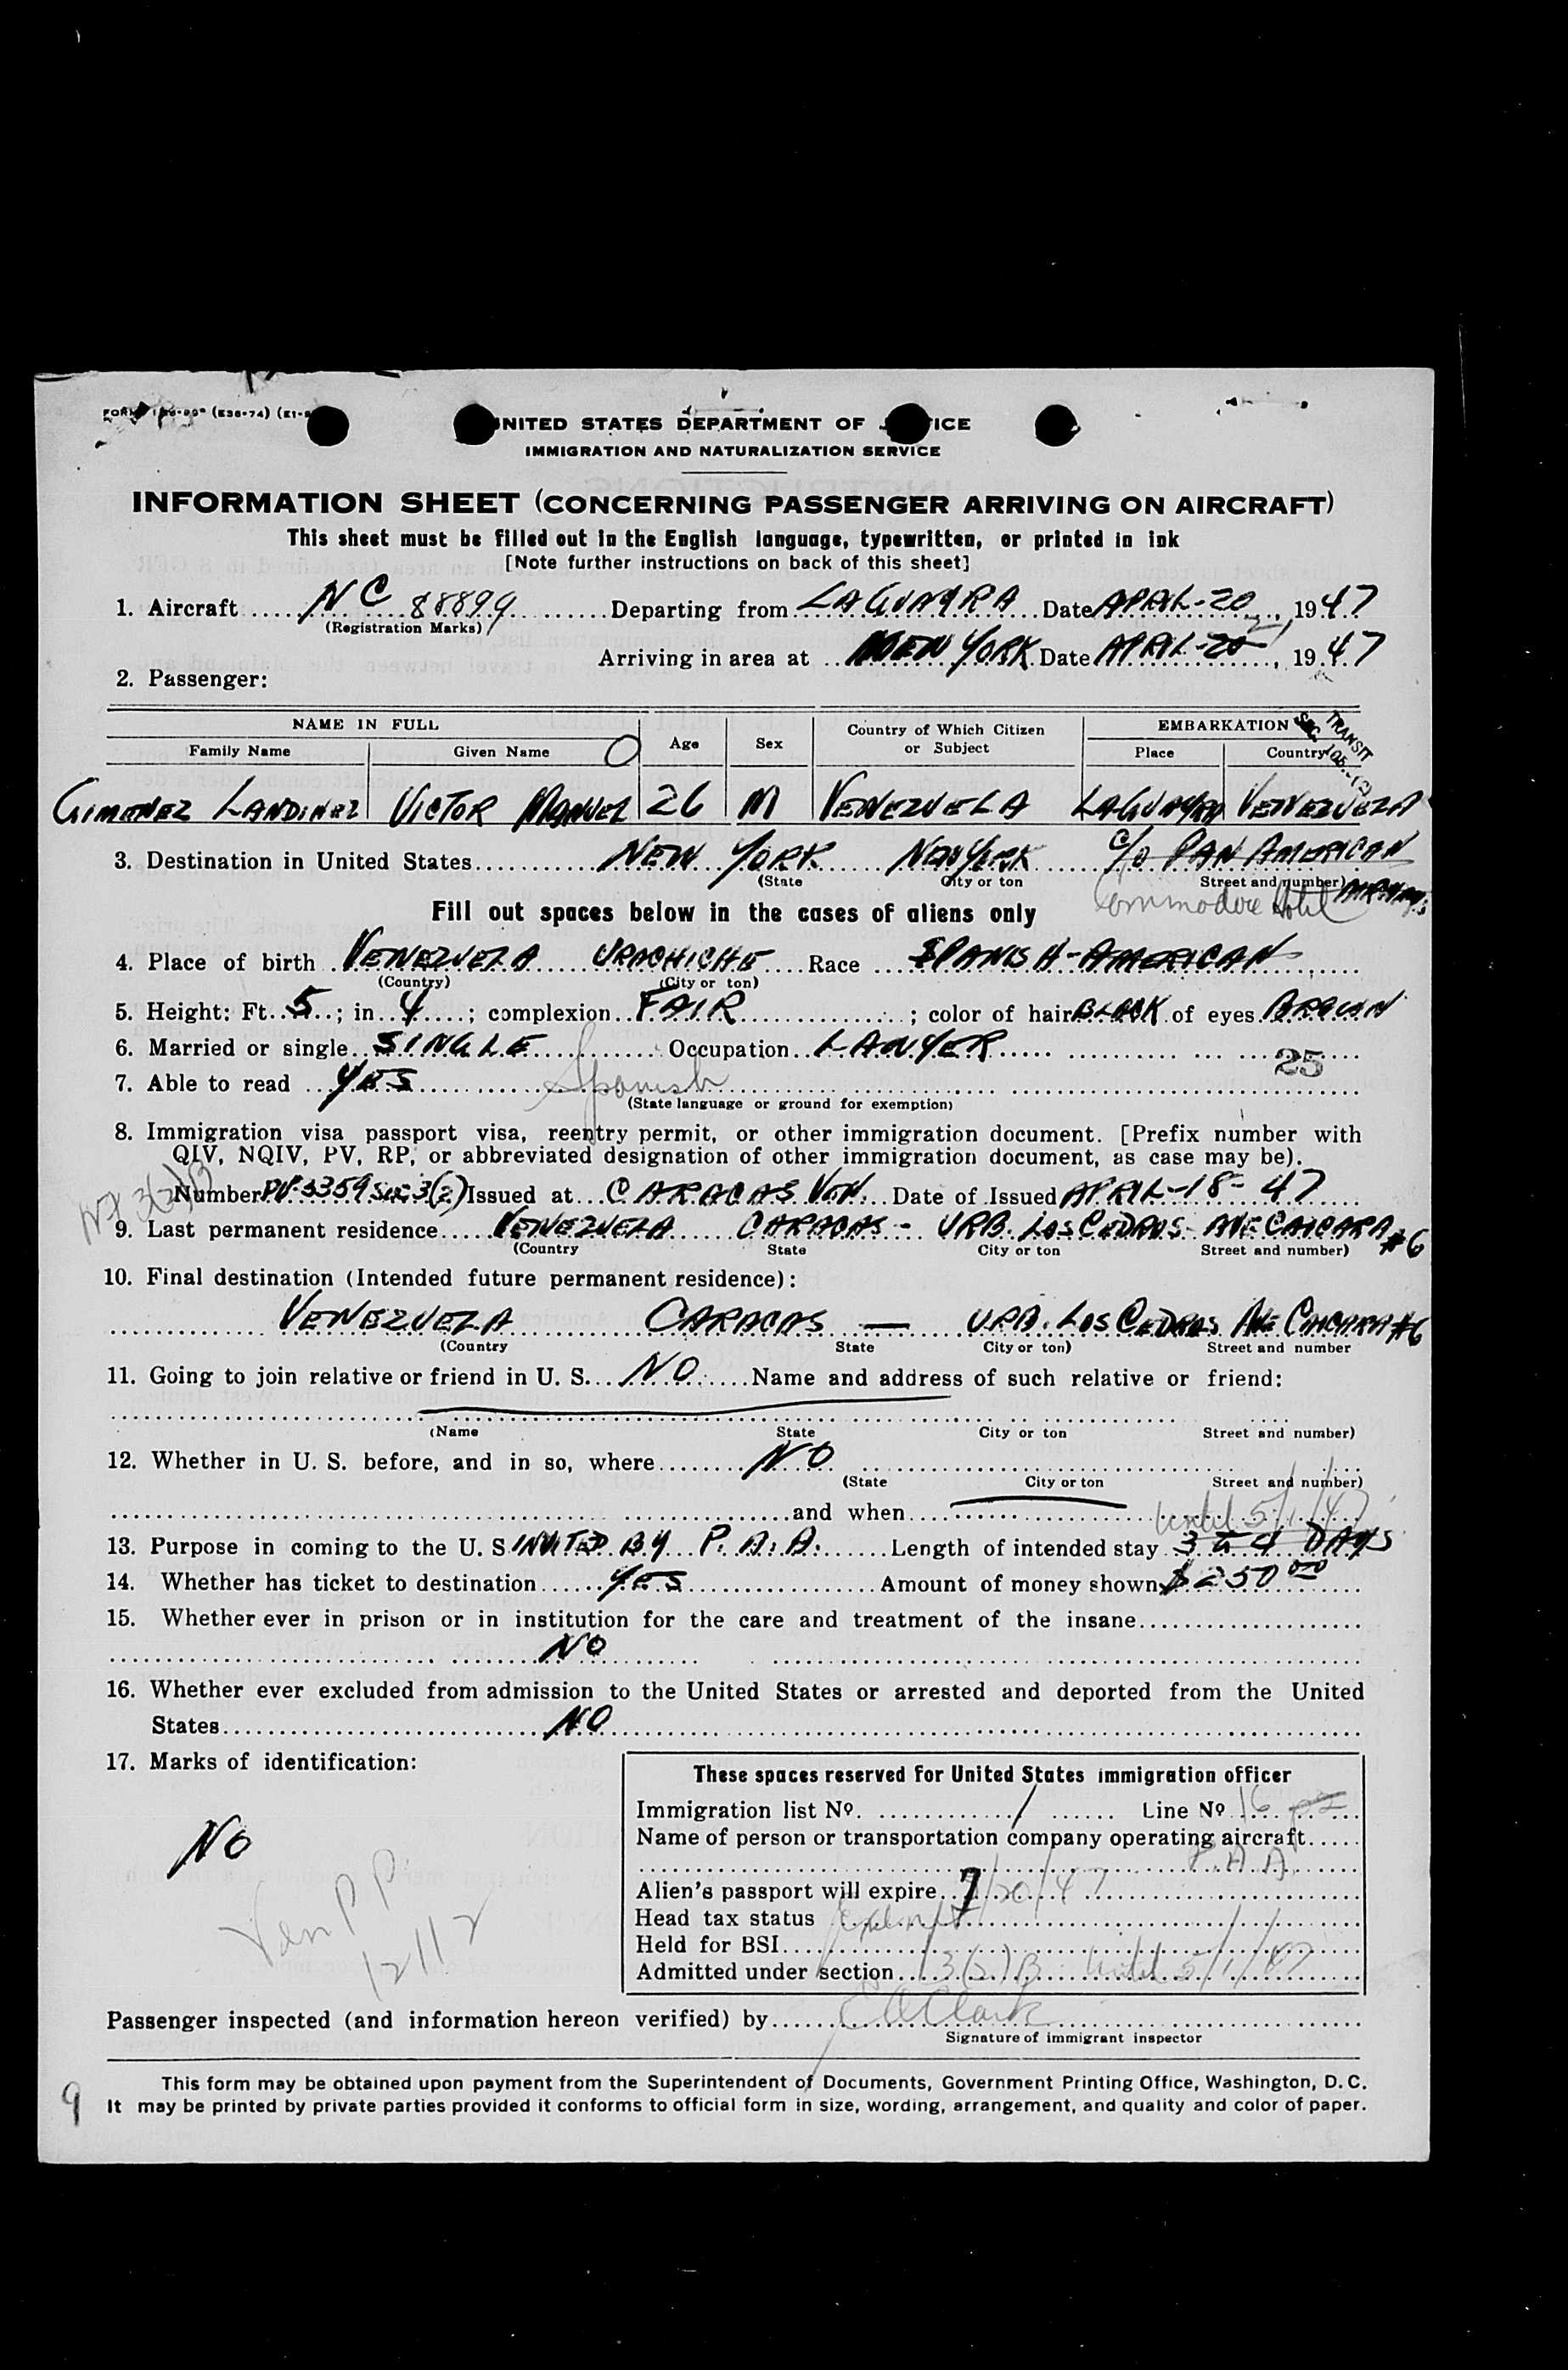 UNITED STATES DEPARTMENT OF JUSTICE
IMMIGRATION AND NATURALIZATION SERVICE
INFORMATION SHEET (CONCERNING PASSENGER ARRIVING ON AIRCRAFT)
This sheet must be filled out in the English language, typewritten, or printed in ink
[Note further instructions on back of this sheet]
1. Aircraft NC 88899 Departing from LA GUAYRA Date APRIL-20, 1947
(Registration Marks)
Arriving in area at NEW YORK Date APRIL-20, 1947
2. Passenger:
NAME IN FULL Age Sex Country of Which Citizen or Subject EMBARKATION TRANSIT
Family Name Given Name O Place Country
GIMENEZ LANDINEZ VICTOR MANUEL 26 M VENEZUELA LA GUAYRA VENEZUELA
3. Destination in United States NEW YORK NEW YORK C/O PAN AMERICAN
(State City or ton Street and number) AIRWAYS
Commodore Hotel
Fill out spaces below in the cases of aliens only
4. Place of birth VENEZUELA URACHICHE Race SPANISH-AMERICAN
(Country) (City or ton)
5. Height: Ft. 5; in 4; complexion FAIR; color of hair BLACK of eyes BROWN
6. Married or single SINGLE Occupation LAWYER
25
7. Able to read YES Spanish
(State language or ground for exemption)
8. Immigration visa passport visa, reentry permit, or other immigration document. [Prefix number with
QIV, NQIV, PV, RP, or abbreviated designation of other immigration document, as case may be).
Number PV-3359 Sec 3(2) Issued at CARACAS VEN. Date of Issued APRIL-18-47
9. Last permanent residence VENEZUELA CARACAS - URB. LOS CEDROS AVE CAICARA #6
(Country State City or ton Street and number)
10. Final destination (Intended future permanent residence):
VENEZUELA CARACAS — URB. LOS CEDROS AVE CAICARA #6
(Country State City or ton) Street and number
11. Going to join relative or friend in U. S. NO Name and address of such relative or friend:
(Name State City or ton Street and number)
12. Whether in U. S. before, and in so, where NO
(State City or ton Street and number)
and when
until 5/1/47
13. Purpose in coming to the U. S INVITED BY P.A.A. Length of intended stay 3 to 4 DAYS
14. Whether has ticket to destination YES Amount of money shown $250 00
15. Whether ever in prison or in institution for the care and treatment of the insane
NO
16. Whether ever excluded from admission to the United States or arrested and deported from the United
States NO
17. Marks of identification:
NO
Ven P P
12112
These spaces reserved for United States immigration officer
Immigration list No. 1 Line No 16
Name of person or transportation company operating aircraft
P.A.A.
Alien's passport will expire 7/20/47
Head tax status
Held for BSI
Admitted under section 3(2)B until 5/1/47
Passenger inspected (and information hereon verified) by E A Clark
Signature of immigrant inspector
This form may be obtained upon payment from the Superintendent of Documents, Government Printing Office, Washington, D. C.
It may be printed by private parties provided it conforms to official form in size, wording, arrangement, and quality and color of paper.
9